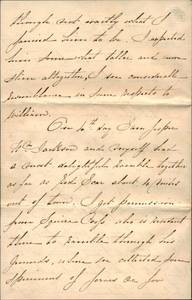 though not exactly what I
fancied him to be. I expected
him somewhat taller and more
slim altogether, I see considerable
resemblance in some respects to
William.
On 4th day Jane Pepper
Wm Jackson and myself had
a most delightful ramble together
as far as about 4 miles
out of town. I got permission
from Squire who is
to ramble through his
grounds, where we collected some
specimens of ferns on for